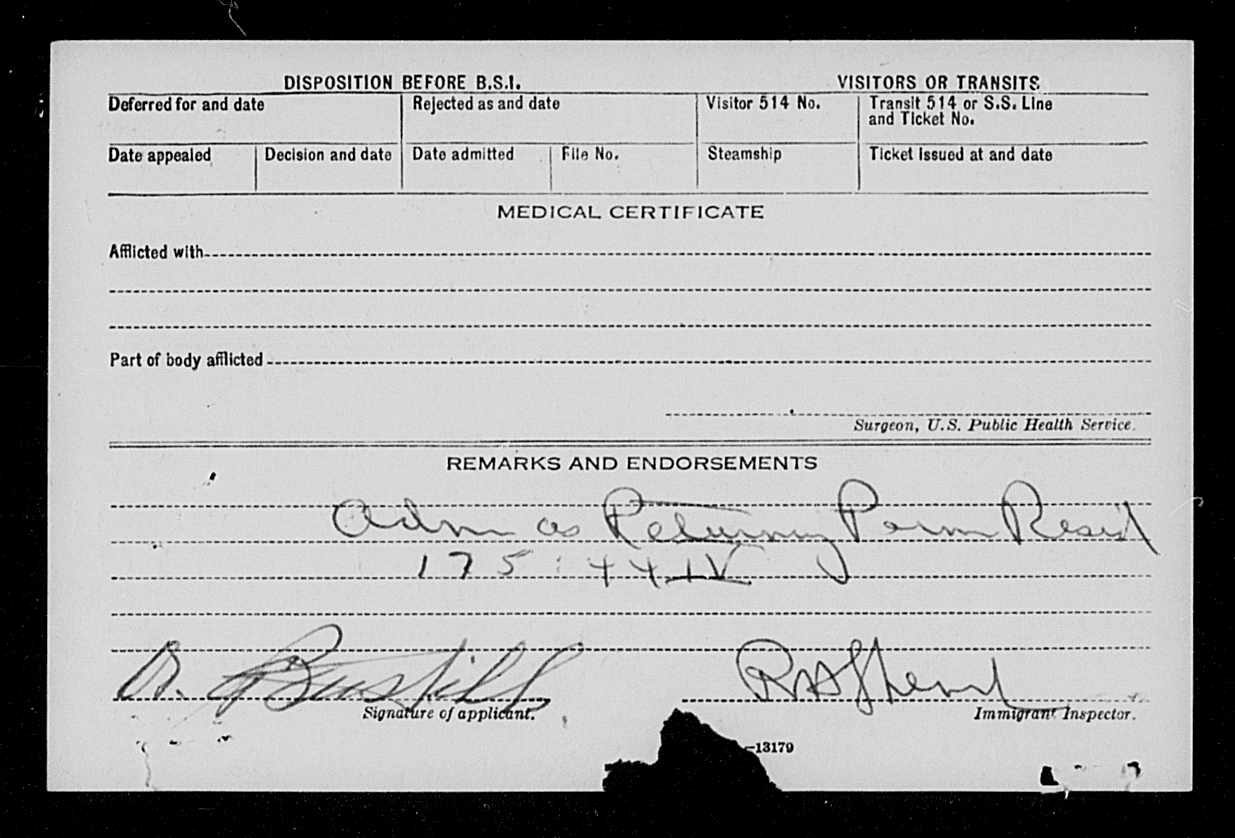 DISPOSITION BEFORE B.S.I. VISITORS OR TRANSITS
Deferred for and date Rejected as and date Visitor 514 No. Transit 514 or S.S. Line and Ticket No.
Date appealed Decision and date Date admitted File No. Steamship Ticket issued at and date
MEDICAL CERTIFICATE
Afflicted with
Part of body afflicted
Surgeon, U.S. Public Health Service.
REMARKS AND ENDORSEMENTS
Adm as Returning Perm Resid
175:44 IV
Signature of applicant. Immigrant Inspector.
—13179